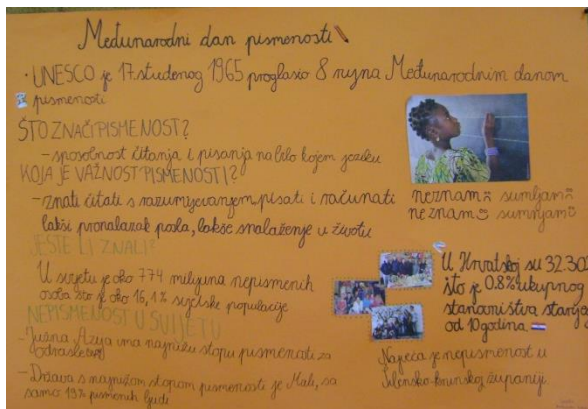 Međunarodni dan pismenosti
· UNESCO je 17 studenog 1965 proglasio 8 rujna Međunarodnim danom
pismenosti
ŠTO ZNAČI PISMENOST?
- sposobnost čitanja i pisanja na bilo kojem jeziku
KOJA JE VAŽNOST PISMENOSTI?
- znati čitati s razumijevanjem, pisati i računati
lakši pronalazak posla, lakše snalaženje u životu
JESTE LI ZNALI?
U svijetu je oko 774 milijuna nepismenih
osoba što je oko 16,1% svjetske populacije
NEPISMENOST U SVIJETU
- Južna Azija ima najnižu stopu pismenosti za
odrasle
- Država s najnižom stopom pismenosti je Mali, sa
samo 19% pismenih ljudi
neznam sumljam
ne znam sumnjam
U Hrvatskoj su 32.302
što je 0.8% ukupnog
stanovništva starija
od 10 godina.
Najveća je nepismenost u
Šibensko-kninskoj županiji